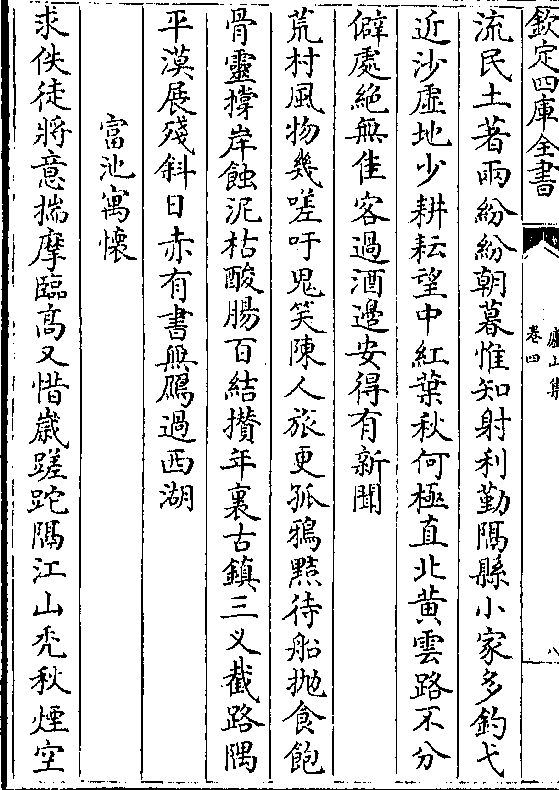 欽定四庫全書
廬山集
卷四
八
流民土著兩紛紛朝暮惟知射利勤隔縣小家多釣弋
近沙虛地少耕耘望中紅葉秋何極直北黃雲路不分
僻處絕無佳客過酒邊安得有新聞
荒村風物幾嗟吁鬼笑陳人旅更孤鴉點待船抛食飽
骨靈撐岸蝕泥枯酸腸百結攢年裏古鎮三义截路隅
平漠展殘斜日赤有書無鴈過西湖
富池寓懷
求佚徒將意揣摩臨高又惜歲蹉跎隔江山禿秋煙空